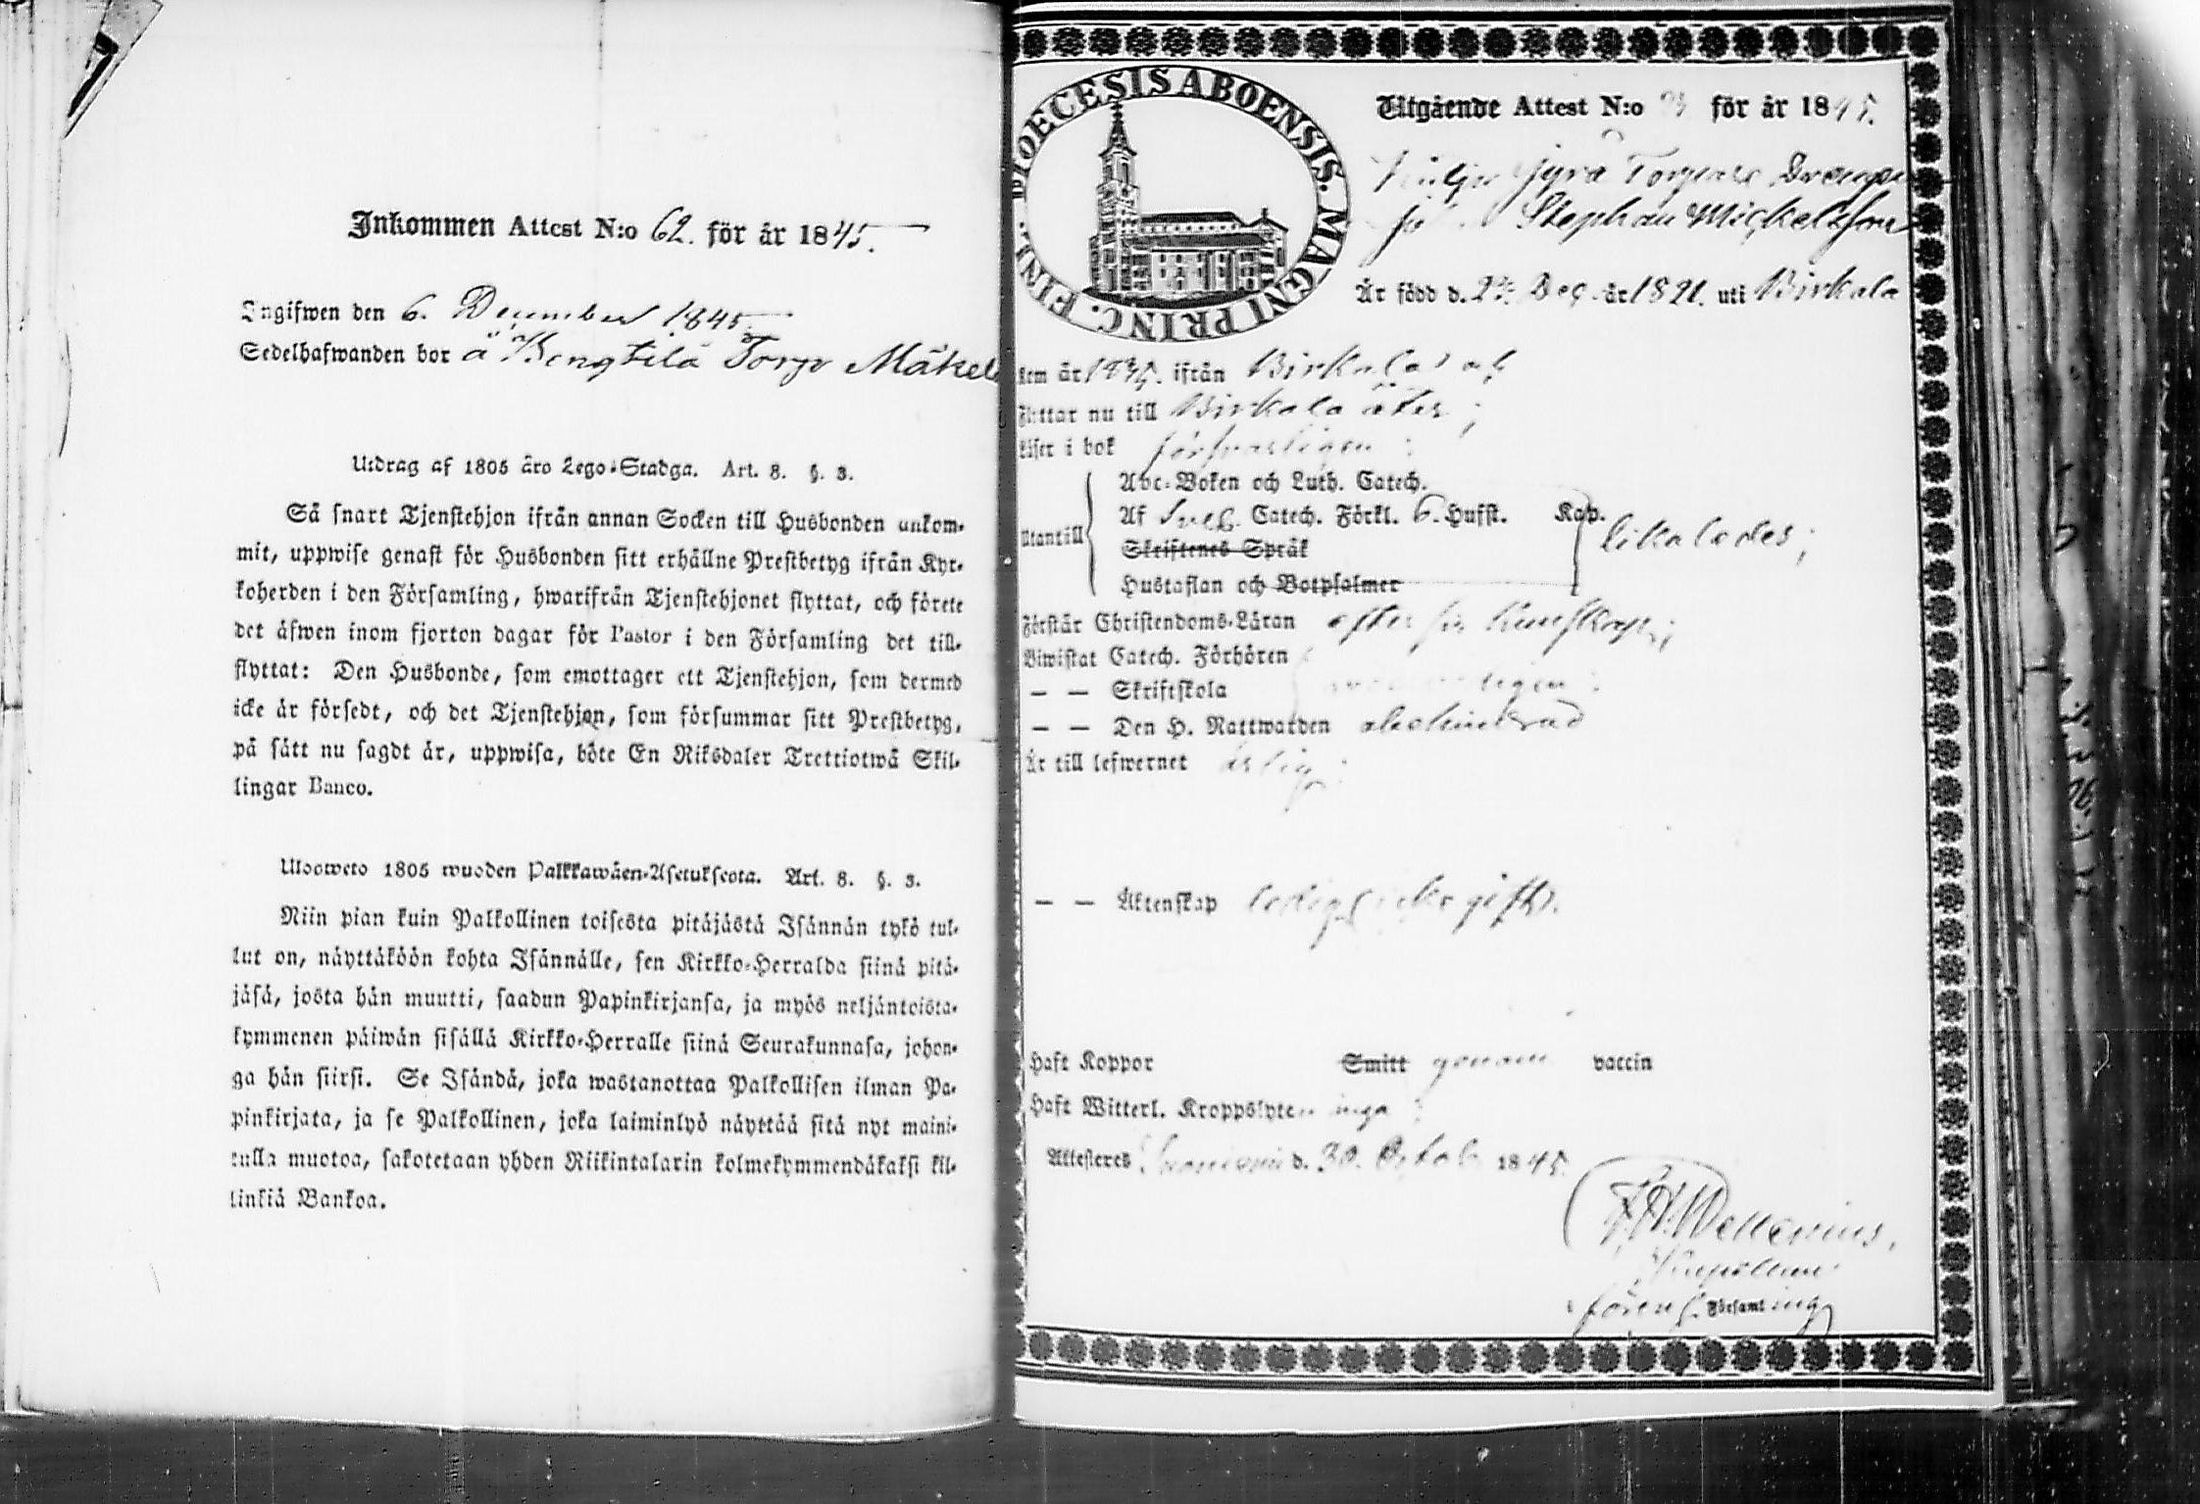 Inkommen Attest N:o 62. för år 1845.
Ingifwen den 6. December 1845
Sedelhafwanden bor å Bengtilä Torp Mäkelä
Utdrag af 1805 års Lego-Stadga. Art. 8. §. 3.
Så snart Tjenstehjon ifrån annan Socken till Husbonden ankom-
mit, uppwise genast för Husbonden sitt erhållne Prestbetyg ifrån Kyr-
koherden i den Församling, hwarifrån Tjenstehjonet flyttat, och förete
det äfwen inom fjorton dagar för Pastor i den Församling det till-
flyttat: Den Husbonde, som emottager ett Tjenstehjon, som dermed
icke är försedt, och det Tjenstehjon, som försummar sitt Prestbetyg,
på sätt nu sagdt är, uppwisa, böte En Riksdaler Trettiotwå Skil-
lingar Banco.
Ulosweto 1805 wuoden Palkkawäen-Asetuksesta. Art. 8. §. 3.
Niin pian kuin Palkollinen toisesta pitäjästä Isännän tykö tul-
lut on, näyttäköön kohta Isännälle, sen Kirkko-Herralda siinä pitä-
jäsä, josta hän muutti, saadun Papinkirjansa, ja myös neljäntoista-
kymmenen päiwän sisällä Kirkko-Herralle siinä Seurakunnasa, johon-
ga hän siirsi. Se Isändä, joka wastanottaa Palkollisen ilman Pa-
pinkirjata, ja se Palkollinen, joka laiminlyö näyttää sitä nyt maini-
tulla muotoa, sakotetaan yhden Riikintalarin kolmekymmendäkaksi kil-
linkiä Bankoa.
DIOECESIS ABOENSIS. MAGNI PRINC. FINL.
Utgående Attest N:o för år 1845.
Torpare Drengen
Stephan Mickelsson
Är född d. Dec. år 1821. uti Birkala
Kom år 1845. ifrån Birkala
Flyttar nu till Birkala åter;
Läser i bok försvarligen;
Abc-Boken och Luth. Catech.
Af Sveb. Catech. Förkl. 6. Hufst. Kap.
Utantill likaledes;
Skriftenes Språk
Hustaflan och Botpsalmer
Förstår Christendoms-Läran efter sin kunskap;
Biwistat Catech. Förhören
— — Skriftskola
— — Den H. Nattwarden obehindrad
Är till lefwernet ärlig;
— — Äktenskap ledig
Haft Koppor Smitt genom vaccin
Haft Witterl. Kroppslyten inga;
Attesteres d. 30. Octob. 1845.
Wellenius,
Kapellan
i Församling